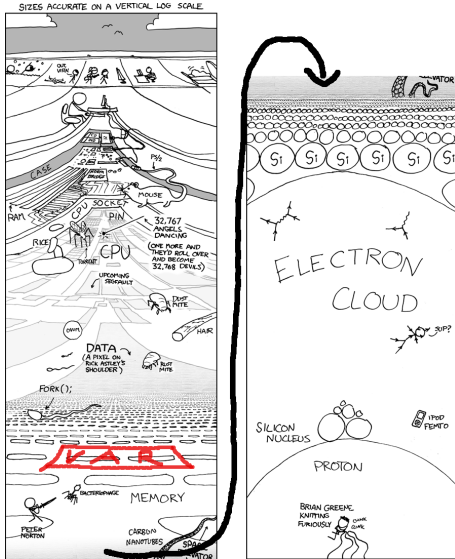 SIZES ACCURATE ON A VERTICAL LOG SCALE
CASE
PS/2
MOUSE
RAM
CPU SOCKET
PIN
RICE
CPU
32,767
ANGELS
DANCING
(ONE MORE AND
THEY'D ROLL OVER
AND BECOME
32,768 DEVILS)
TORRENT
UPCOMING
SEGFAULT
DUST
MITE
OVUM
HAIR
DATA
(A PIXEL ON
RICK ASTLEY'S
SHOULDER)
RUST
MITE
FORK();
VAR
BACTERIOPHAGE
MEMORY
PETER
NORTON
CARBON
NANOTUBES
SPACE
Si
Si
Si
Si
Si
Si
ELECTRON
CLOUD
SUP?
IPOD
FEMTO
SILICON
NUCLEUS
PROTON
BRIAN GREENE
KNITTING
FURIOUSLY